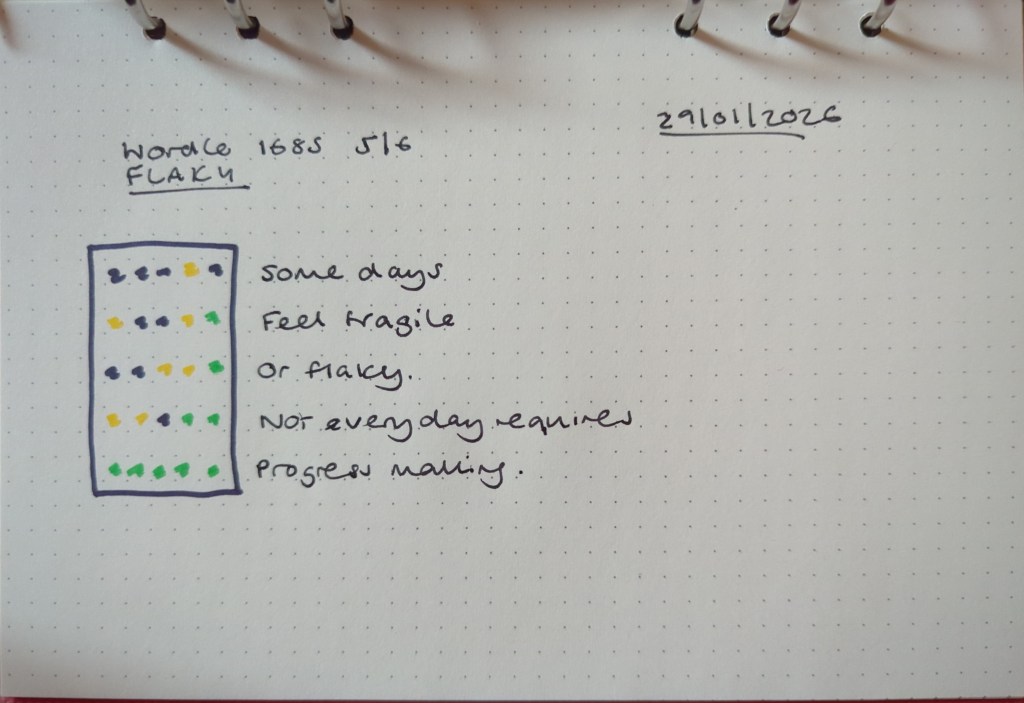 29/01/2026
Wordle 1685 5/6
FLAKY
Some days
Feel fragile
Or flaky.
Not everyday requires
Progress making.